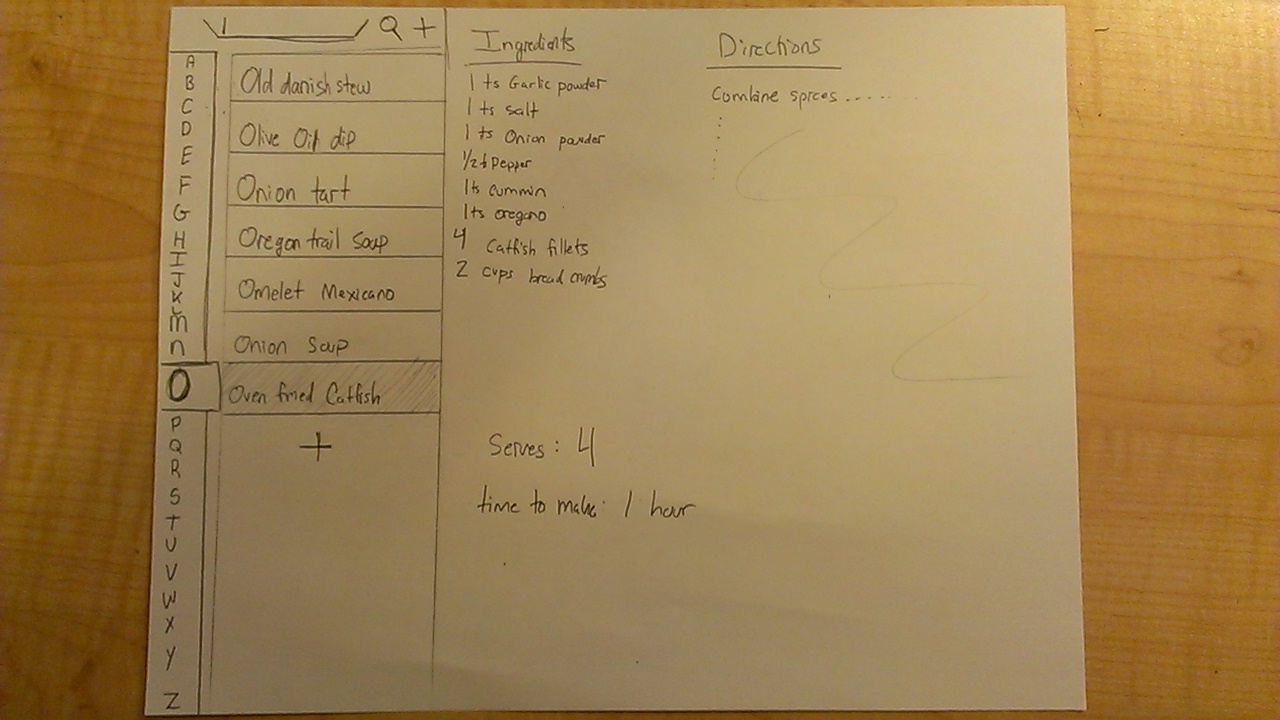 Q +
A
B
C
D
E
F
G
H
I
J
K
m
n
O
P
Q
R
S
T
U
V
W
X
Y
Z
Old danish stew
Olive Oil dip
Onion tart
Oregon trail Soup
Omelet Mexicano
Onion Soup
Oven fried Catfish
+
Ingredients
1 ts Garlic powder
1 ts salt
1 ts Onion powder
1/2 t Pepper
1 ts cummin
1 ts oregano
4 Catfish fillets
2 cups bread crumbs
Serves: 4
time to make: 1 hour
Directions
Combine spices .....